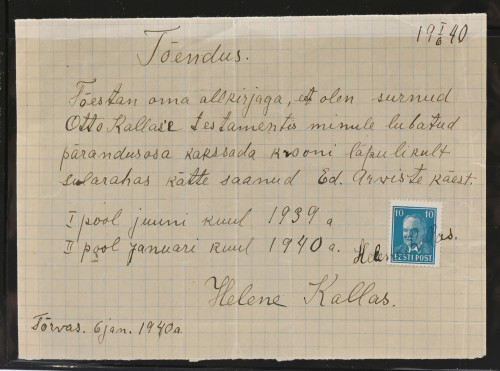 19 I/6 40
Tõendus.
Tõestan oma allkirjaga, et olen surnud
Otto Kallase testamentis minule lubatud
pärandusosa kakssada krooni lõpulikult
sularahas kätte saanud Ed. Arwiste käest.
I pool juuni kuul 1939 a
II pool januari kuul 1940 a.
10 10
EESTI POST
Helene Kallas.
Tõrvas. 6 jan. 1940 a.